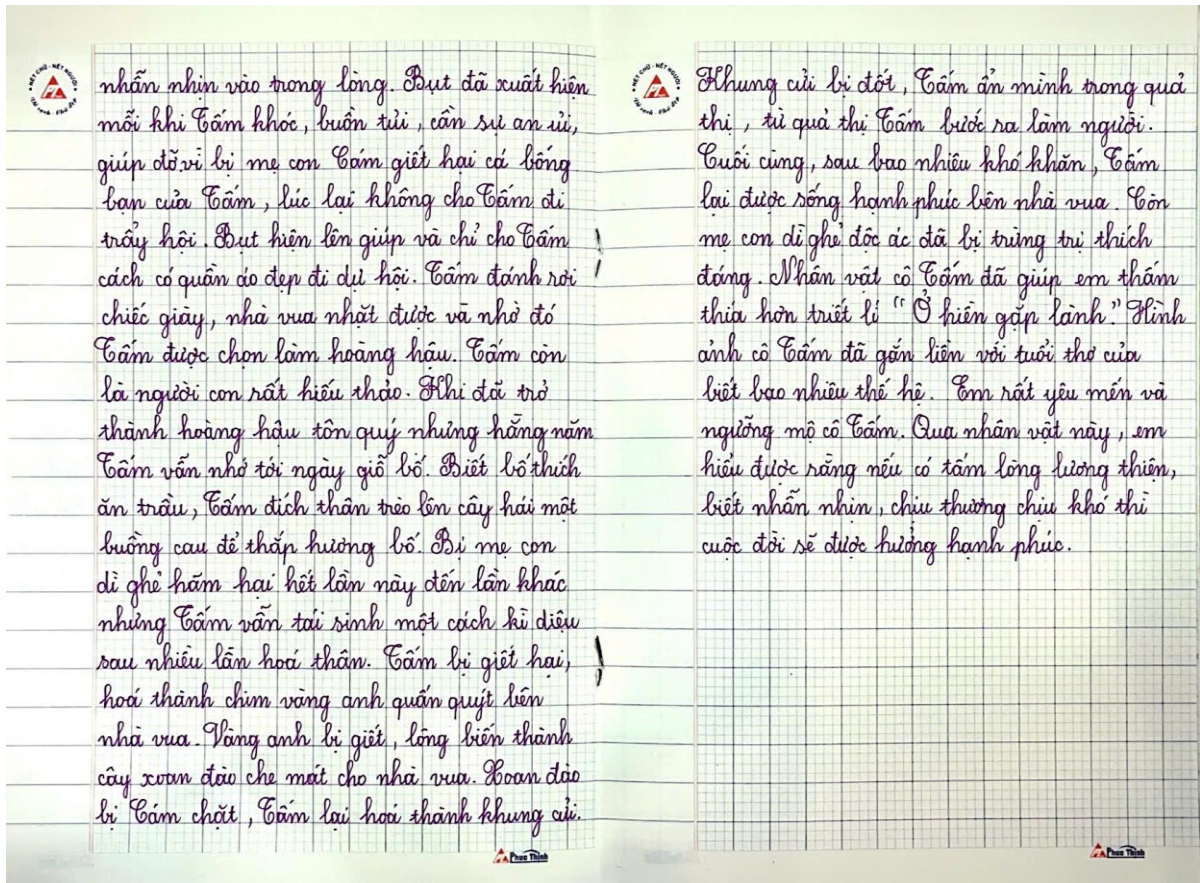 NÉT CHỮ - NẾT NGƯỜI
nhẫn nhịn vào trong lòng. Bụt đã xuất hiện
mỗi khi Tấm khóc, buồn tủi, cần sự an ủi,
giúp đỡ.vì bị mẹ con Cám giết hại cá bống
bạn của Tấm, lúc lại không cho Tấm đi
trẩy hội. Bụt hiện lên giúp và chỉ cho Tấm
cách có quần áo đẹp đi dự hội. Tấm đánh rơi
chiếc giày, nhà vua nhặt được và nhờ đó
Tấm được chọn làm hoàng hậu. Tấm còn
là người con rất hiếu thảo. Khi đã trở
thành hoàng hậu tôn quý nhưng hằng năm
Tấm vẫn nhớ tới ngày giỗ bố. Biết bố thích
ăn trầu, Tấm đích thân trèo lên cây hái một
buồng cau để thắp hương bố. Bị mẹ con
dì ghẻ hãm hại hết lần này đến lần khác
nhưng Tấm vẫn tái sinh một cách kì diệu
sau nhiều lần hoá thân. Tấm bị giết hại,
hoá thành chim vàng anh quấn quýt bên
nhà vua. Vàng anh bị giết, lông biến thành
cây xoan đào che mát cho nhà vua. Xoan đào
bị Cám chặt, Tấm lại hoá thành khung cửi.
Phuc Thinh
NÉT CHỮ - NẾT NGƯỜI
Khung cửi bị đốt, Tấm ẩn mình trong quả
thị, từ quả thị Tấm bước ra làm người.
Cuối cùng, sau bao nhiêu khó khăn, Tấm
lại được sống hạnh phúc bên nhà vua. Còn
mẹ con dì ghẻ độc ác đã bị trừng trị thích
đáng. Nhân vật cô Tấm đã giúp em thấm
thía hơn triết lí "Ở hiền gặp lành." Hình
ảnh cô Tấm đã gắn liền với tuổi thơ của
biết bao nhiêu thế hệ. Em rất yêu mến và
ngưỡng mộ cô Tấm. Qua nhân vật này, em
hiểu được rằng nếu có tấm lòng lương thiện,
biết nhẫn nhịn, chịu thương chịu khó thì
cuộc đời sẽ được hưởng hạnh phúc.
Phuc Thinh